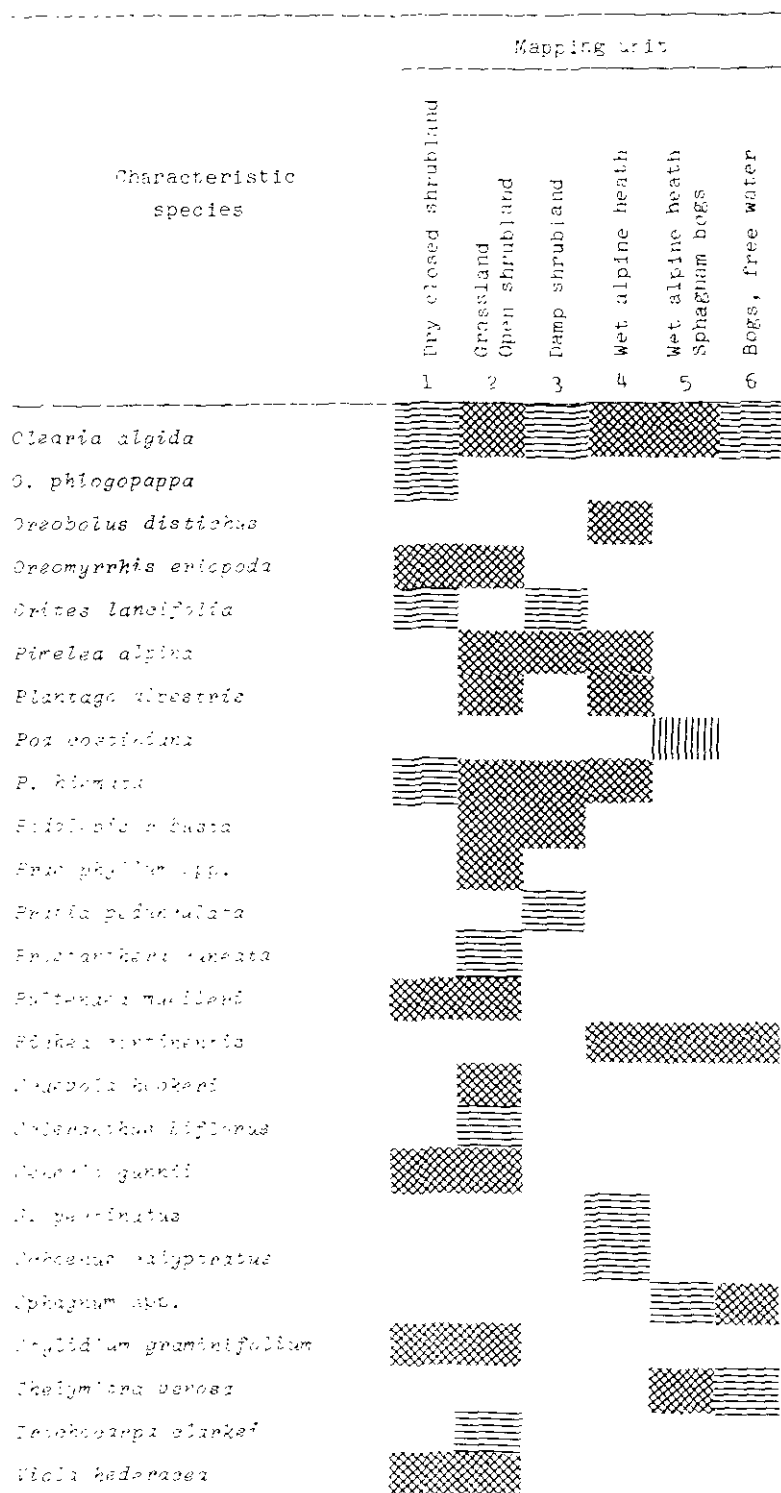 Mapping unit
Characteristic
species
Dry closed shrubland
Grassland
Open shrubland
Damp shrubland
Wet alpine heath
Wet alpine heath
Sphagnam bogs
Bogs, free water
1 2 3 4 5 6
Olearia algida
O. phlogopappa
Oreobolus distichus
Oreomyrrhis eriopoda
Orites lancifolia
Pimelea alpina
Plantago
Poa costiniana
P. hiemata
Podolepis robusta
spp.
Pratia pedunculata
Prostanthera cuneata
Pultenaea muelleri
Richea continentis
Scaevola hookeri
Scleranthus biflorus
Senecio gunnii
S. pectinatus
Schoenus calyptratus
Sphagnum spp.
Stylidium graminifolium
Thelymitra venosa
Trochocarpa clarkei
Viola hederacea